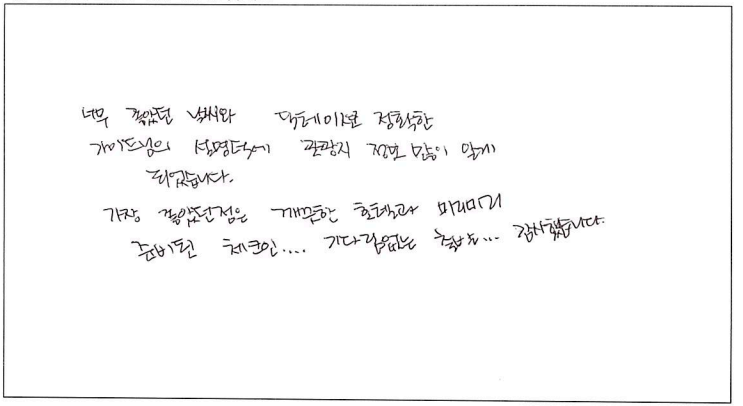 너무 좋았던 날씨와 정확한
가이드님의 설명덕에 관광지 정보 많이 알게
되었습니다.
가장 좋았던점은 깨끗한 호텔과 미리미리
준비된 체크인.... 기다림없는 ... 감사했습니다.